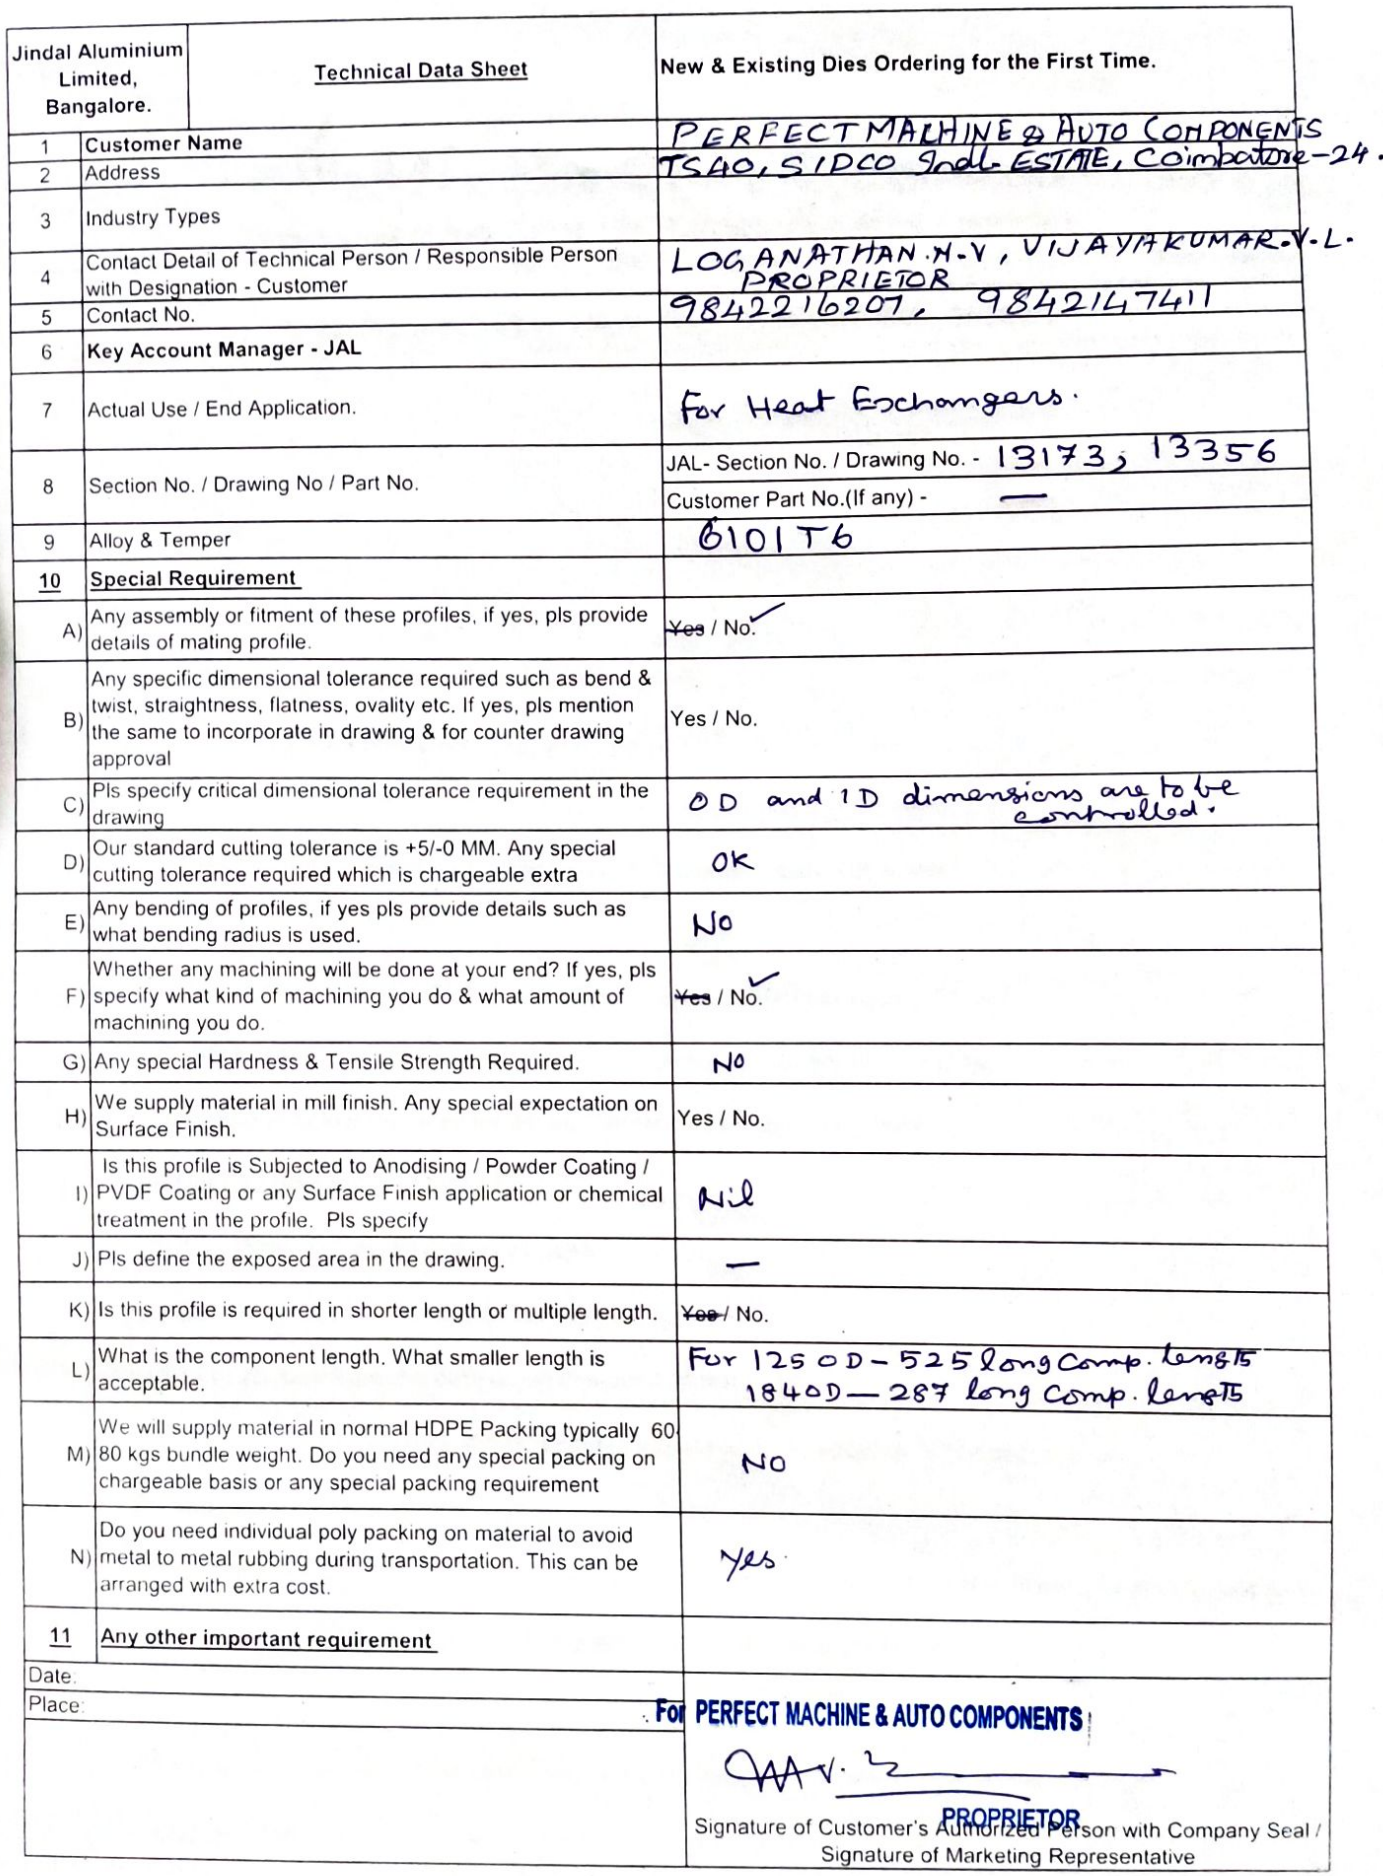 Jindal Aluminium
Limited,
Bangalore.
Technical Data Sheet
New & Existing Dies Ordering for the First Time.
1 Customer Name PERFECT MACHINE & AUTO COMPONENTS
2 Address TS40, SIDCO Indl. ESTATE, Coimbatore-24.
3 Industry Types
4 Contact Detail of Technical Person / Responsible Person
with Designation - Customer
LOGANATHAN.N.V, VIJAYAKUMAR.V.L.
PROPRIETOR
5 Contact No. 9842216207, 9842147411
6 Key Account Manager - JAL
7 Actual Use / End Application. For Heat Exchangers.
8 Section No. / Drawing No / Part No.
JAL- Section No. / Drawing No. - 13173, 13356
Customer Part No.(If any) - —
9 Alloy & Temper 6101 T6
10 Special Requirement
A) Any assembly or fitment of these profiles, if yes, pls provide
details of mating profile.
Yes / No. ✓
B) Any specific dimensional tolerance required such as bend &
twist, straightness, flatness, ovality etc. If yes, pls mention
the same to incorporate in drawing & for counter drawing
approval
Yes / No.
C) Pls specify critical dimensional tolerance requirement in the
drawing
OD and ID dimensions are to be
controlled.
D) Our standard cutting tolerance is +5/-0 MM. Any special
cutting tolerance required which is chargeable extra
OK
E) Any bending of profiles, if yes pls provide details such as
what bending radius is used.
No
F) Whether any machining will be done at your end? If yes, pls
specify what kind of machining you do & what amount of
machining you do.
Yes / No. ✓
G) Any special Hardness & Tensile Strength Required. NO
H) We supply material in mill finish. Any special expectation on
Surface Finish.
Yes / No.
I) Is this profile is Subjected to Anodising / Powder Coating /
PVDF Coating or any Surface Finish application or chemical
treatment in the profile. Pls specify
Nil
J) Pls define the exposed area in the drawing. —
K) Is this profile is required in shorter length or multiple length. Yes / No.
L) What is the component length. What smaller length is
acceptable.
For 125 OD - 525 long comp. length
184 OD - 287 long comp. length
M) We will supply material in normal HDPE Packing typically 60-
80 kgs bundle weight. Do you need any special packing on
chargeable basis or any special packing requirement
NO
N) Do you need individual poly packing on material to avoid
metal to metal rubbing during transportation. This can be
arranged with extra cost.
Yes.
11 Any other important requirement
Date:
Place:
For PERFECT MACHINE & AUTO COMPONENTS
PROPRIETOR
Signature of Customer's Authorized Person with Company Seal /
Signature of Marketing Representative